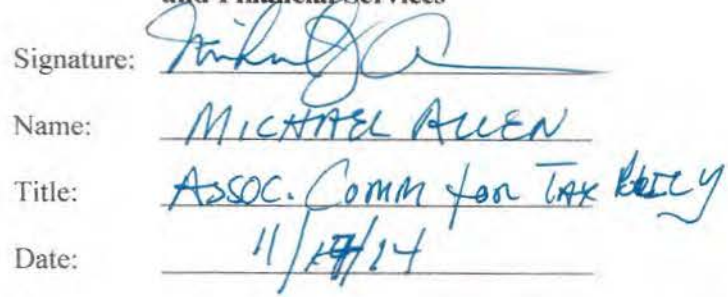 and Financial Services
Signature:
Name: MICHAEL ALLEN
Title: Assoc. Comm for Tax Policy
Date: 11/17/14